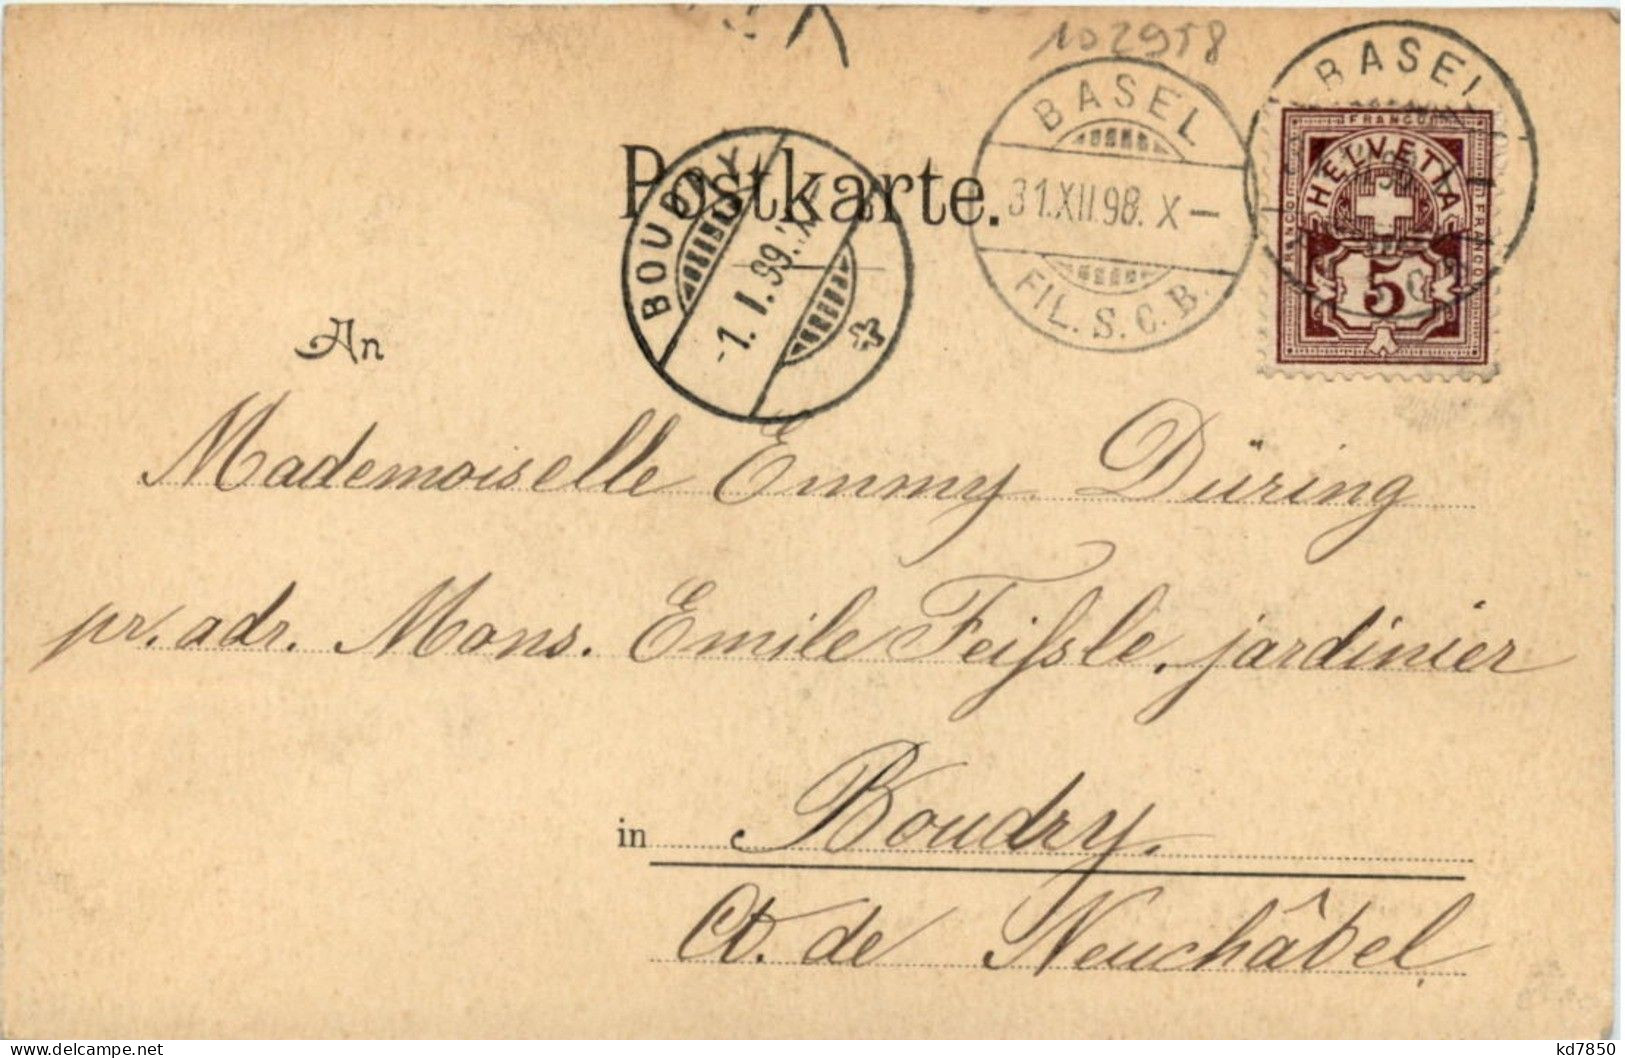 102958
BASEL
31.XII.98.X–
FIL. S. C. B.
BASEL
FRANCO
FRANCO
FRANCO
HELVETIA
5
Postkarte.
BOUDRY
-1.I.99.XI
An
Mademoiselle Emmy Düring
pr. adr. Mons. Emile Feifsle, jardinier
in Boudry.
Ct. de Neuchâtel
kd7850